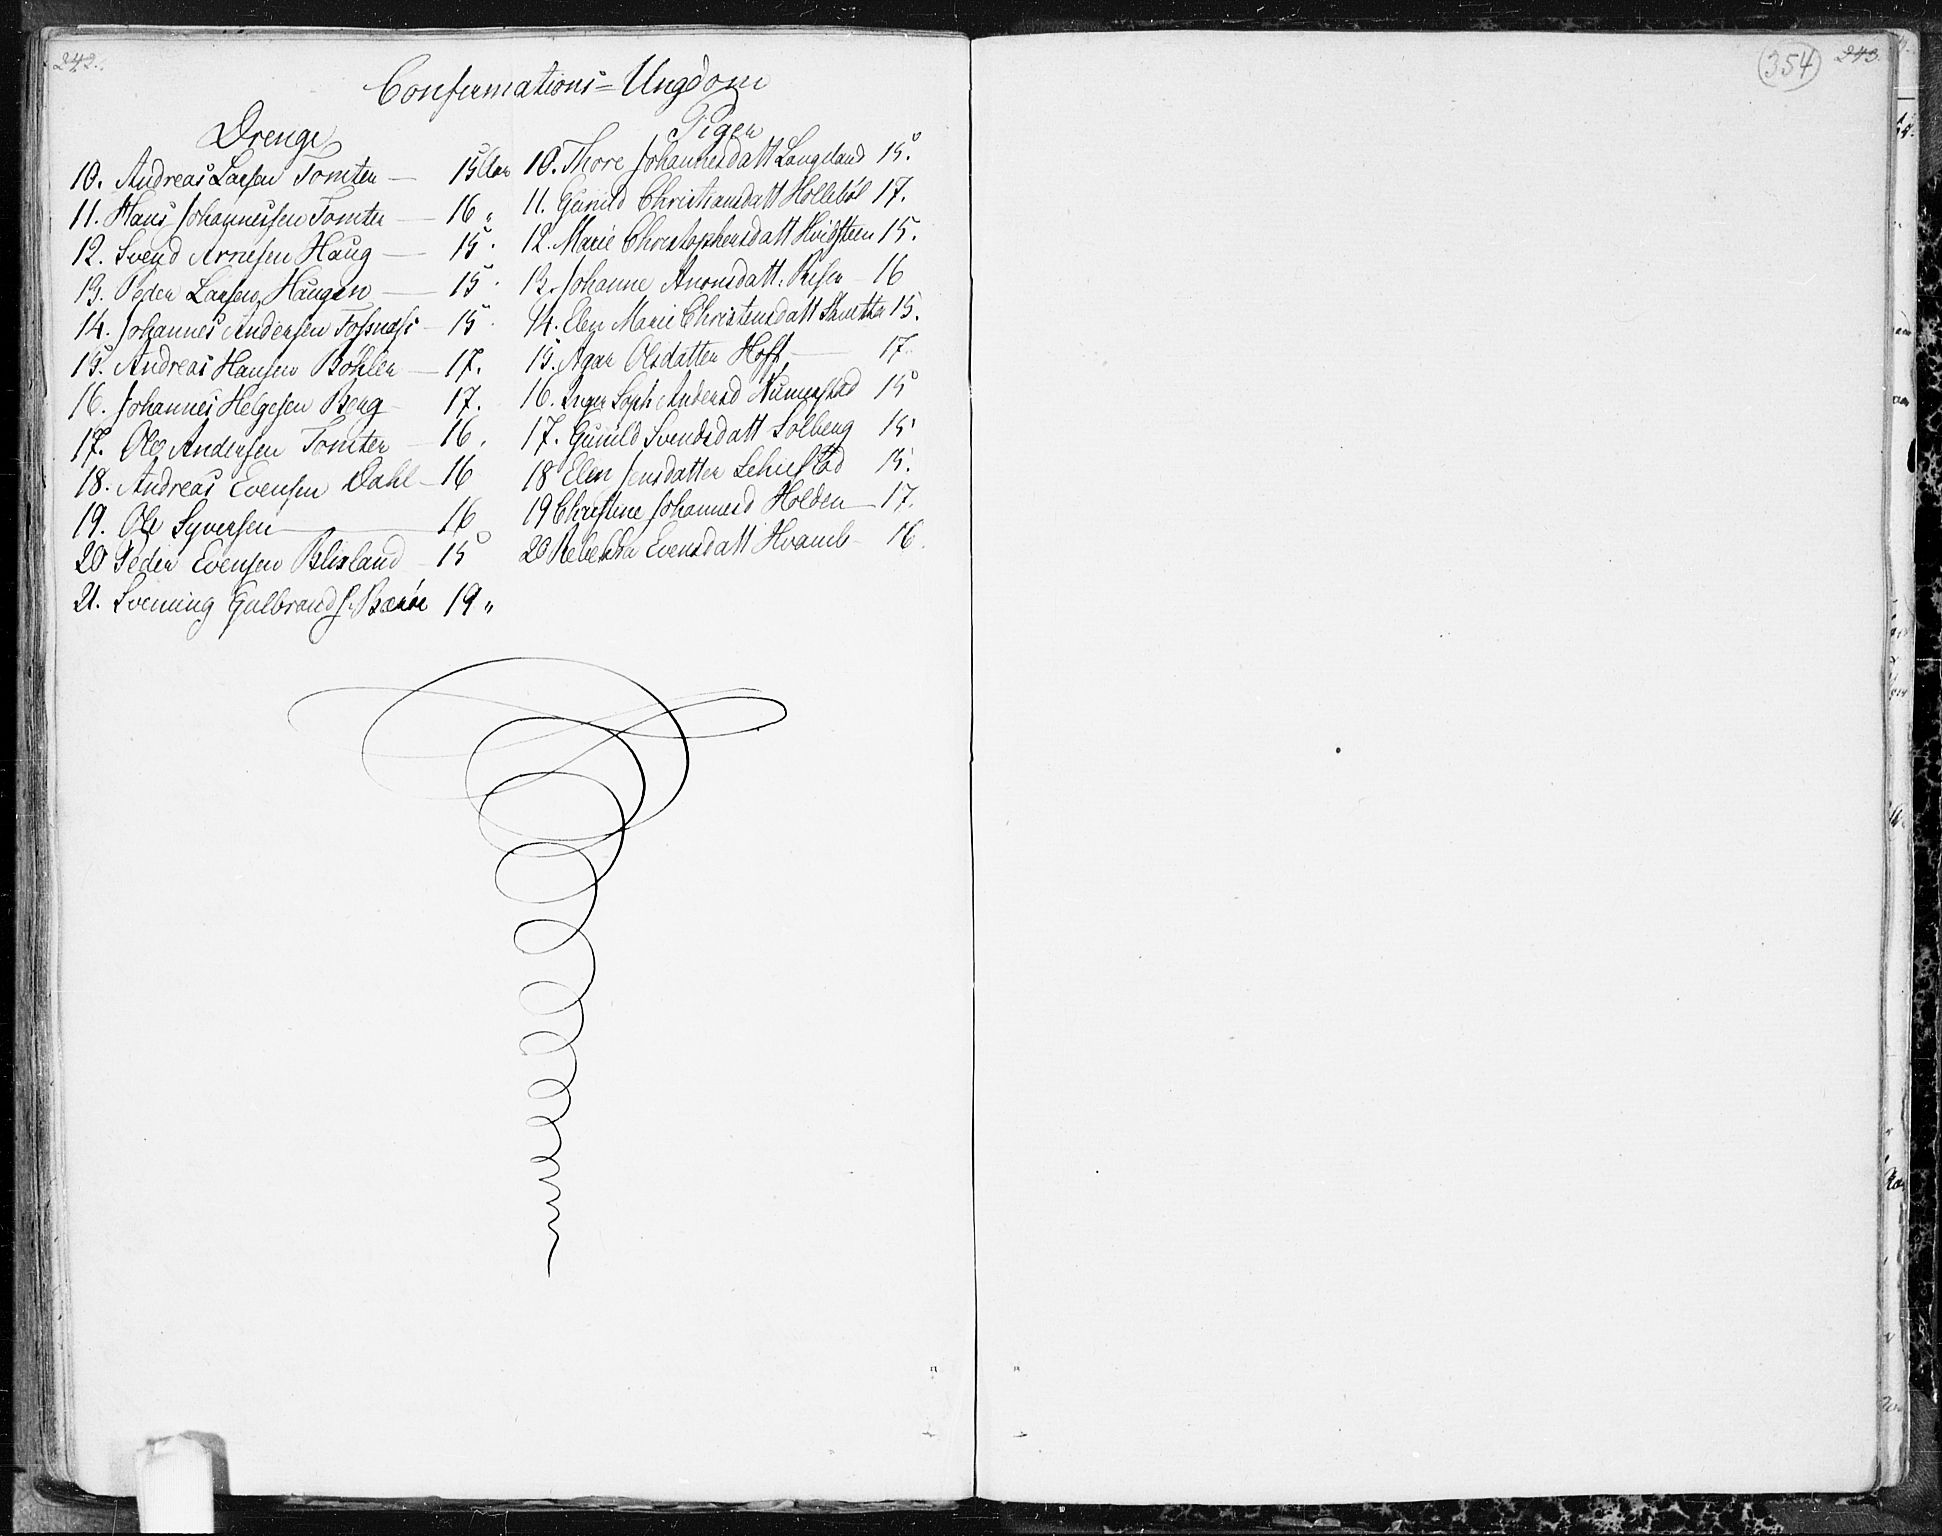 242.
Confirmations=Ungdom
Drenge
10. Andreas Larsen Tomter — 15 Aar
11. Hans Johannessen Tomter — 16 "
12. Svend Arnesen Haug — 15.
13. Peder Larsen Haugen — 15.
14. Johannes Andersen — 15.
15. Andreas Hansen Bøhler — 17.
16. Johannes Helgesen Berg 17.
17. Ole Andersen Tomter — 16.
18. Andreas Evensen Dahl — 16
19. Ole Syversen — 16
20 Peder Evensen Blixland 15
21. Svenning Gulbrands. Bærøe 19 "
Piger
10. Thore Johannesdatt Langeland 15.
11. Gunild Christiansdatt Hollebøl 17.
12. Marie Christophersdatt Hvidsteen 15.
13. Johanne Aronsdatt. Riser — 16
14. Elen Marie Christensdatt 15.
15. Agar Olsdatter Hoff — 17.
16. Inger Soph. Andersd 15
17. Gunild Svendsdatt Solberg 15.
18 Elen Jensdatter 15.
19 Christine Johannesd Holden — 17.
20 Rebekka Evensdatt Hvamb — 16.
(354) 243.